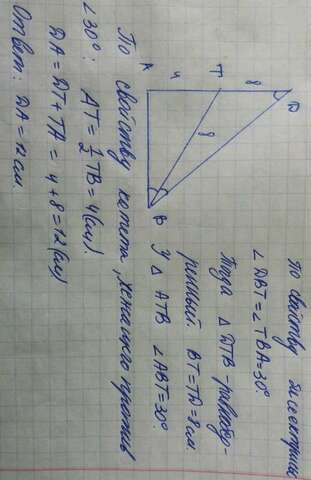 A
4
T
8
D
8
B
По свойству биссектрисы
∠DBT=∠TBA=30°.
Тогда △DTB-равнобед-
ренный. BT=TD=8 см.
У △ ATB ∠ABT=30°.
По свойству катета, лежащего против
∠30°: AT=½TB=4(см).
DA=DT+TA=4+8=12(см)
Ответ: DA=12 см.